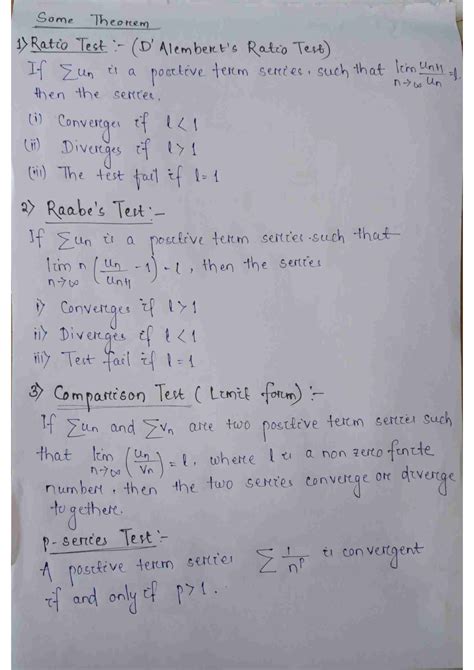 Some Theorem
1) Ratio Test :- (D'Alembert's Ratio Test)
If ∑un is a positive term series, such that lim n→∞ un+1/un = l
then the series.
(i) Converges if l < 1
(ii) Diverges if l > 1
(iii) The test fail if l = 1
2) Raabe's Test :-
If ∑un is a positive term series such that
lim n→∞ n (un/un+1 - 1) = l, then the series
i) Converges if l > 1
ii) Diverges if l < 1
iii) Test fail if l = 1
3) Comparison Test (Limit form) :-
If ∑un and ∑vn are two positive term series such
that lim n→∞ (un/vn) = l, where l is a non zero finite
number, then the two series converge or diverge
together.
p-series Test :-
A positive term series ∑ 1/n^p is convergent
if and only if p > 1.